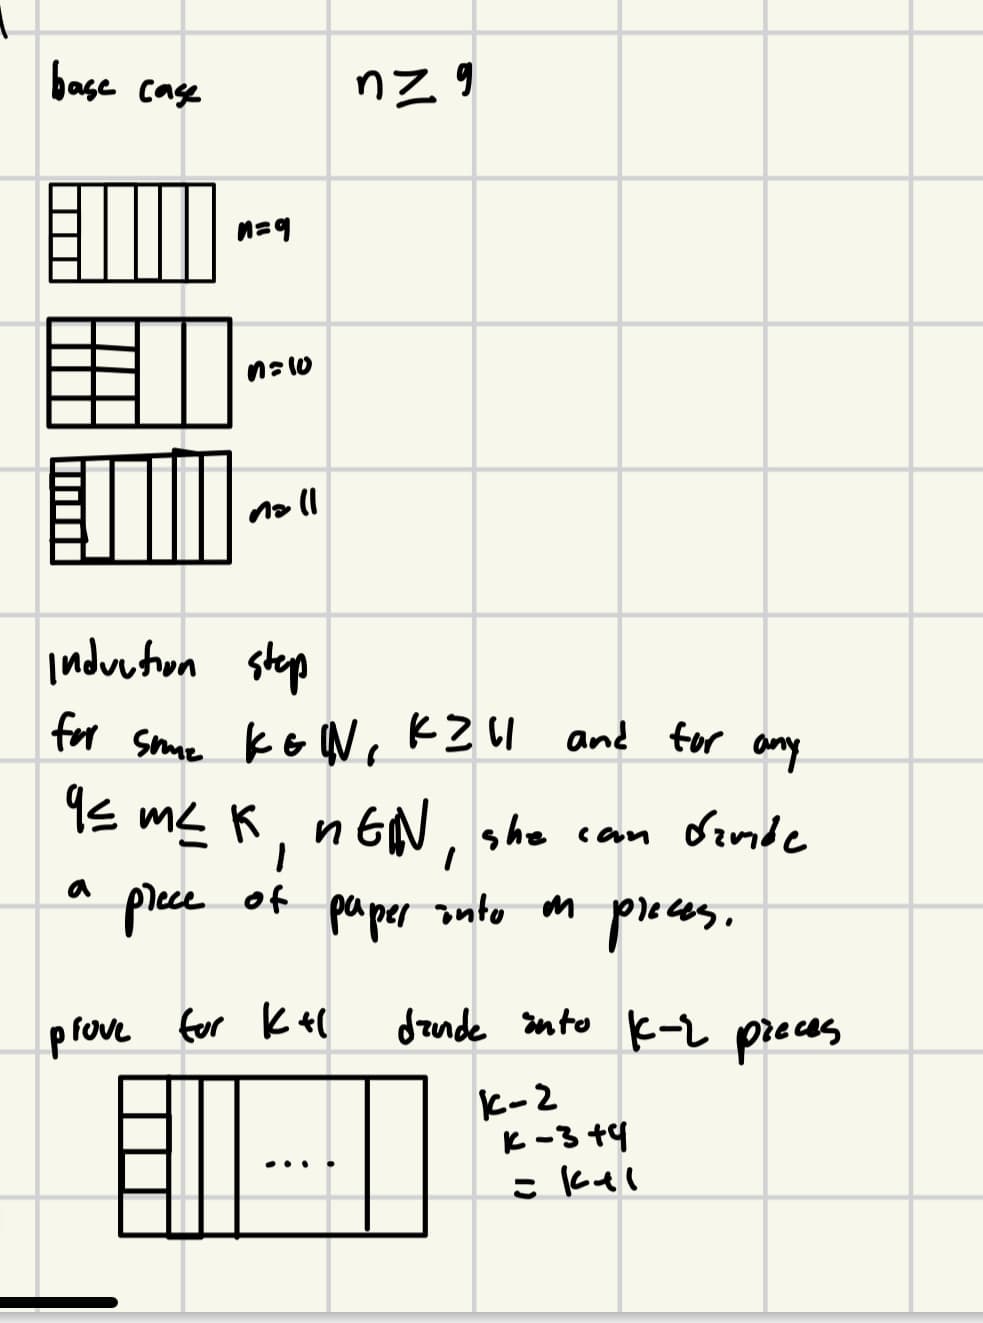 base case n ≥ 9
n=9
n=10
n=11
induction step
for some k ∈ ℕ, k ≥ 11 and for any
9 ≤ m ≤ k, n ∈ ℕ, she can divide
a piece of paper into m pieces.
prove for k+1 divide into k-2 pieces
k-2
k-3+4
= k+1